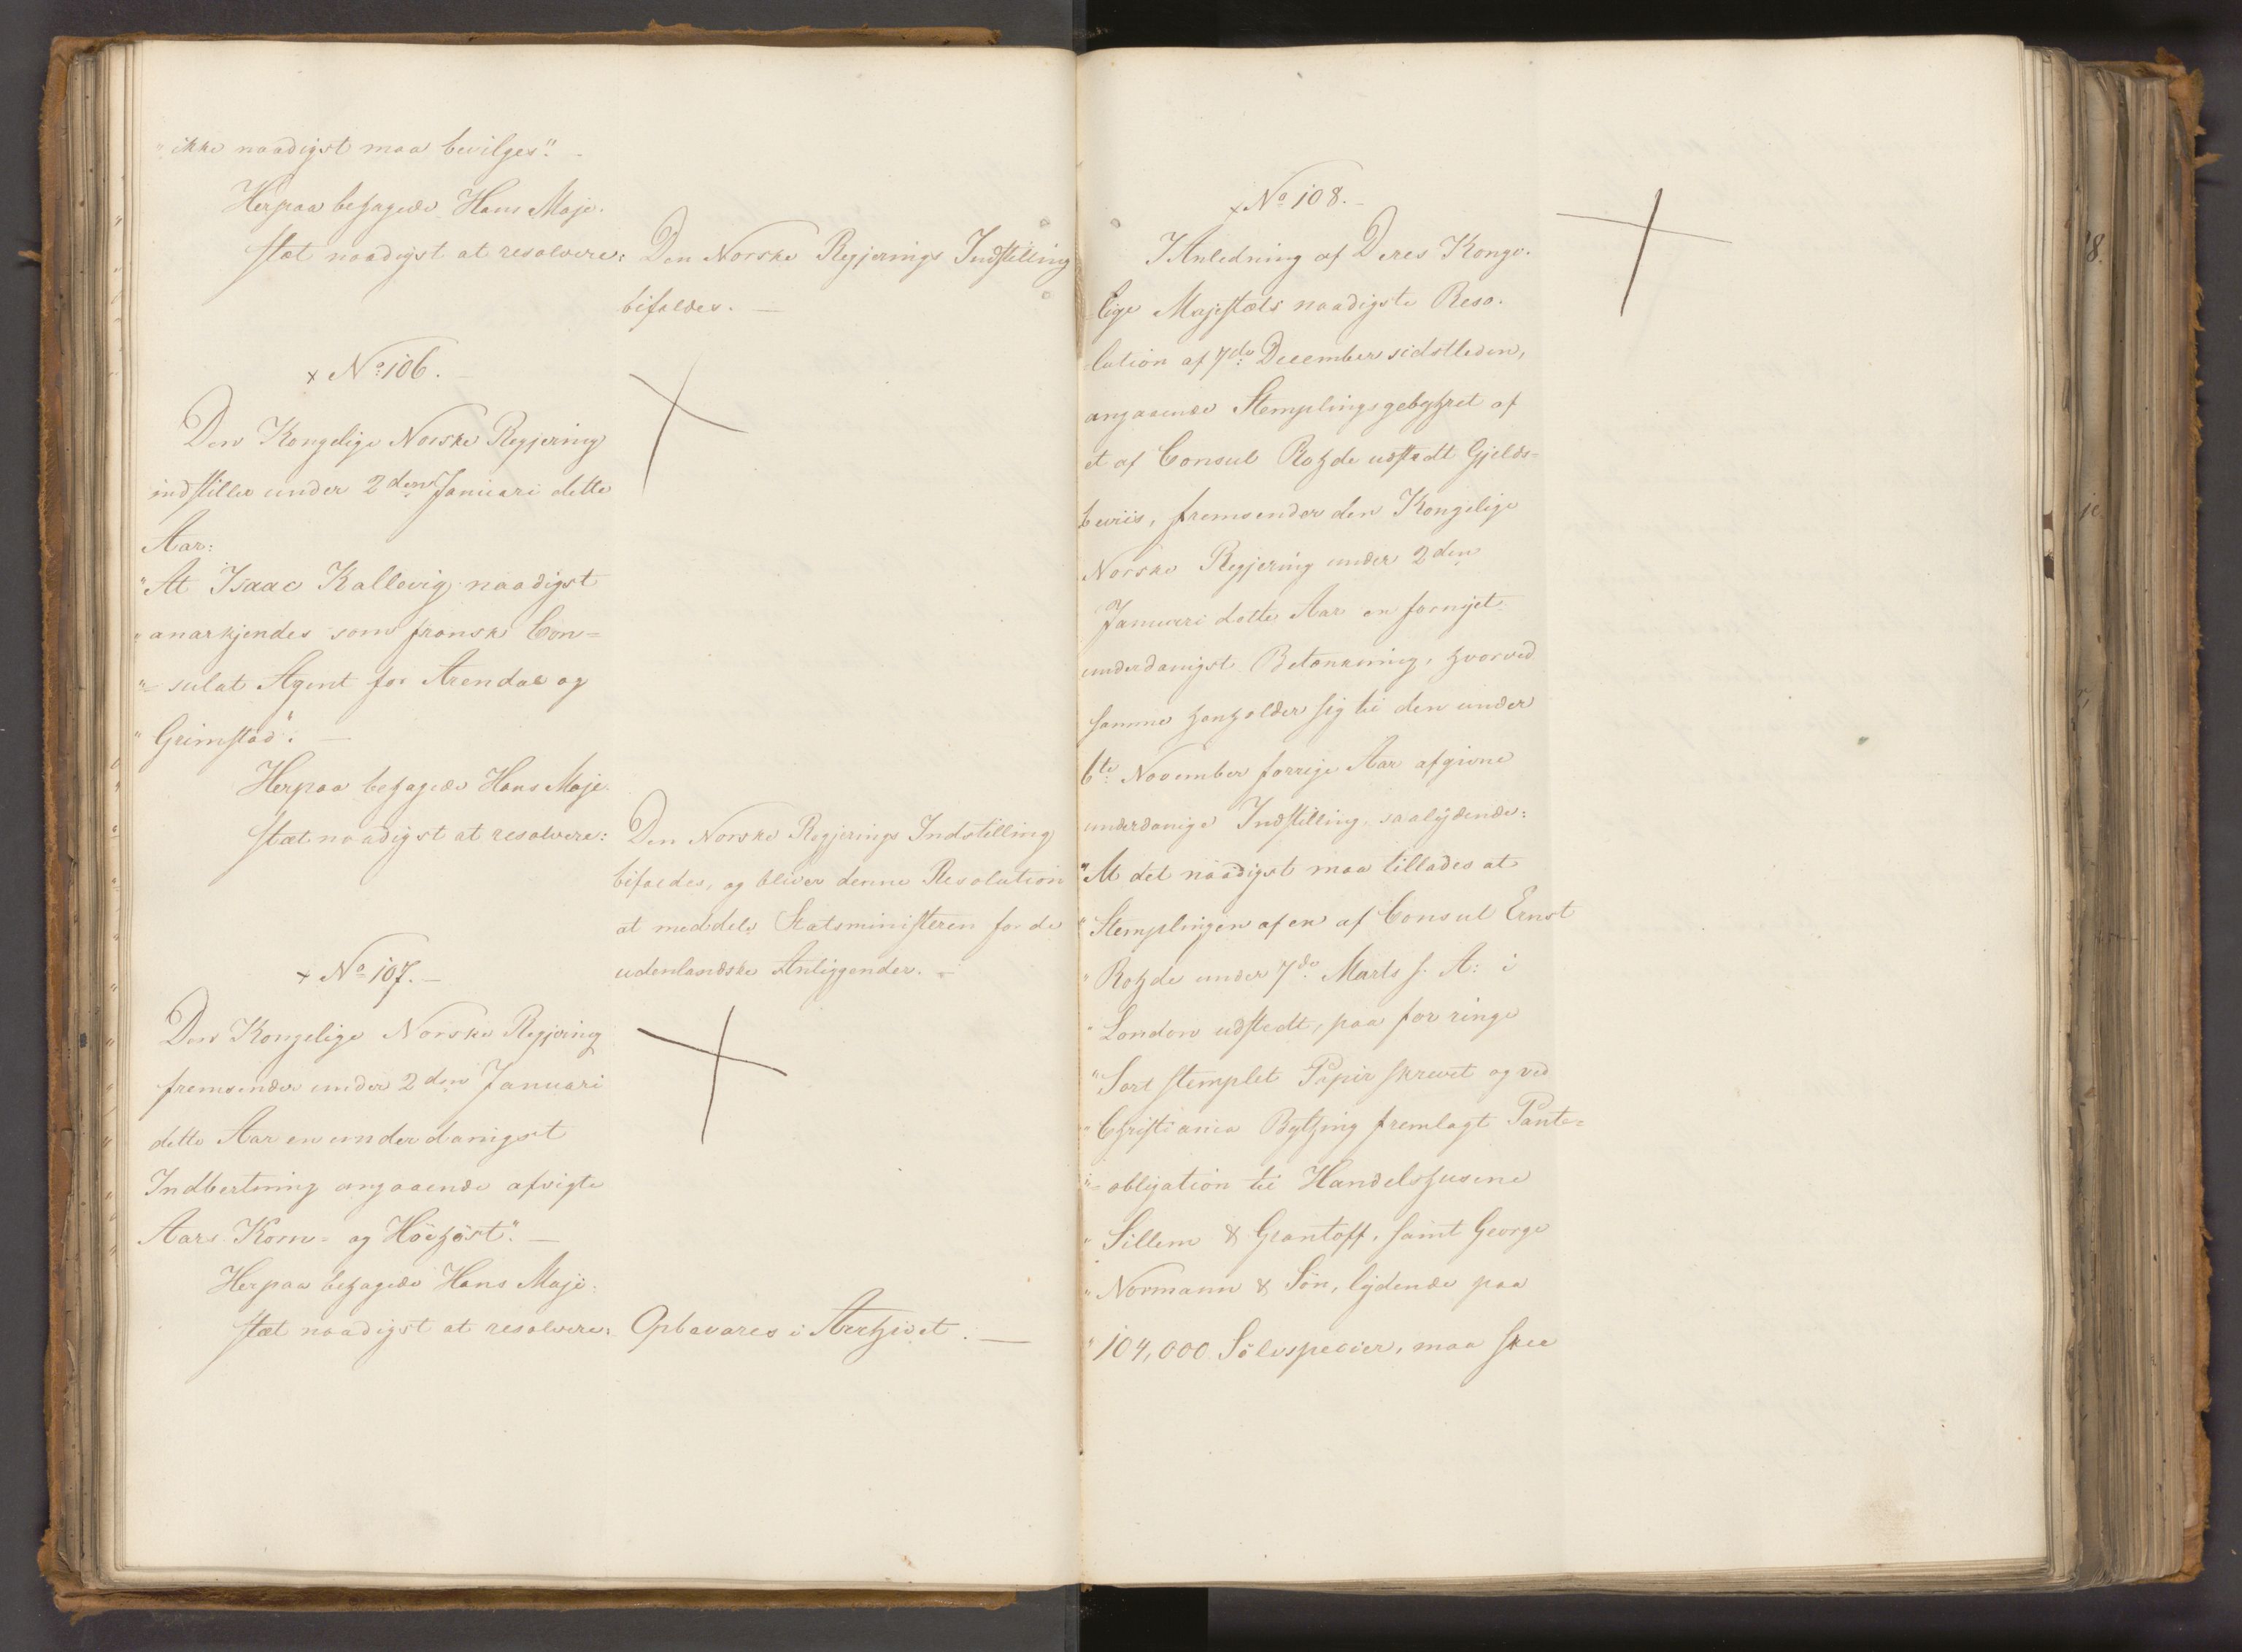 "ikke naadigst maa bevilges". –
Herpaa behagede Hans Maje-
stæt naadigst at resolvere:
Den Norske Regjerings Indstilling
bifaldes. —
x No 106. –
Den Kongelige Norske Regjering
indstiller under 2den Januari dette
Aar:
"At Isaac Kallevig naadigst
"anærkjendes som fransk Con=
"=sulat Agent for Arendal og
"Grimstad". —
Herpaa behagede Hans Maje-
stæt naadigst at resolvere:
Den Norske Regjerings Indstilling
bifaldes, og bliver denne Resolution
at meddele Statsministeren for de
udenlandske Anliggender. –
x No 107. –
Den Kongelige Norske Regjering
fremsender under 2den Januari
dette Aar en underdanigst
Indberetning angaaende afvigte
Aars Korn- og Höehöst". —
Herpaa behagede Hans Maje-
stæt naadigst at resolvere:
Opbevares i Archivet. —
x No 108. –
I Anledning af Deres Konge-
lige Majestæts naadigste Reso-
lution af 7de December sidstleden,
angaaende Stemplingsgebyhret af
et af Consul Rohde udstedt Gjelds=
beviis, fremsender den Kongelige
Norske Regjering under 2den
Januari dette Aar en fornyet
underdanigst Betænkning, hvorved
samme henholder sig til den under
6te November forrige Aar afgivne
underdanige Indstilling, saalydende:
"At det naadigst maa tillades at
"Stemplingen af en af Consul Ernst
"Rohde under 7de Marts f. A: i
"London udstedt, paa for ringe
"Sort stemplet Papir skrevet og ved
"Christiania Bything fremlagt Pante=
"=obligation til Handelshusene
"Sillem & Grantoff, samt George
"Normann & Sön, lydende paa
"104,000 Sölvspecier, maa skee
18.